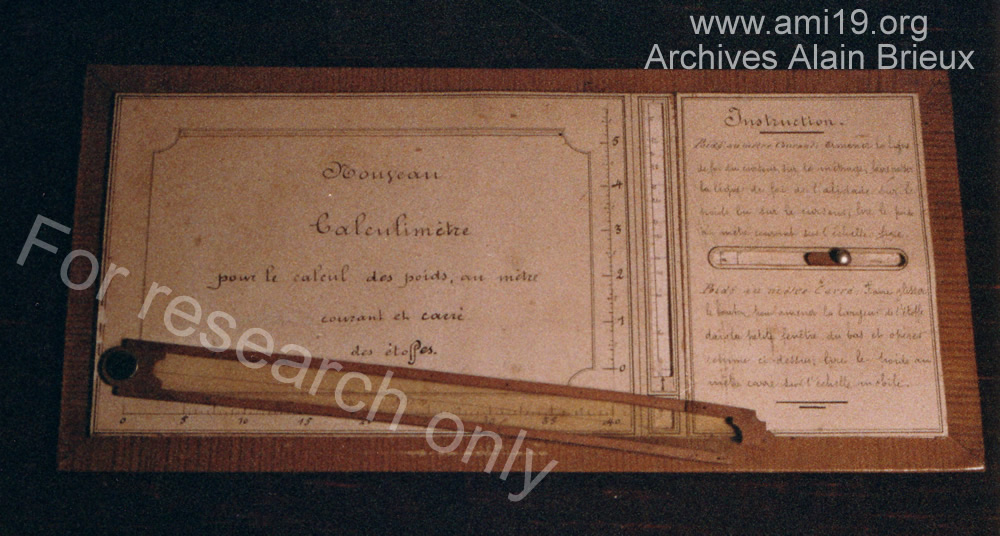 www.ami19.org
Archives Alain Brieux
Nouveau
Calculimètre
pour le calcul des poids, au mètre
courant et carré
des étoffes.
5
4
3
2
1
0
0 5 10 15 35 40
Instruction.
Poids au mètre Courant. Amener la ligne
de foi du curseur sur le métrage, faire passer
la ligne de foi de l'alidade sur le
poids lu sur le curseur, lire le poids
au mètre courant sur l'échelle fixe.
Poids au mètre Carré. Faire glisser
le bouton, pour amener la largeur de l'étoffe
dans la petite fenêtre du bas et opérer
comme ci-dessus, lire le poids au
mètre carré sur l'échelle mobile.
For research only